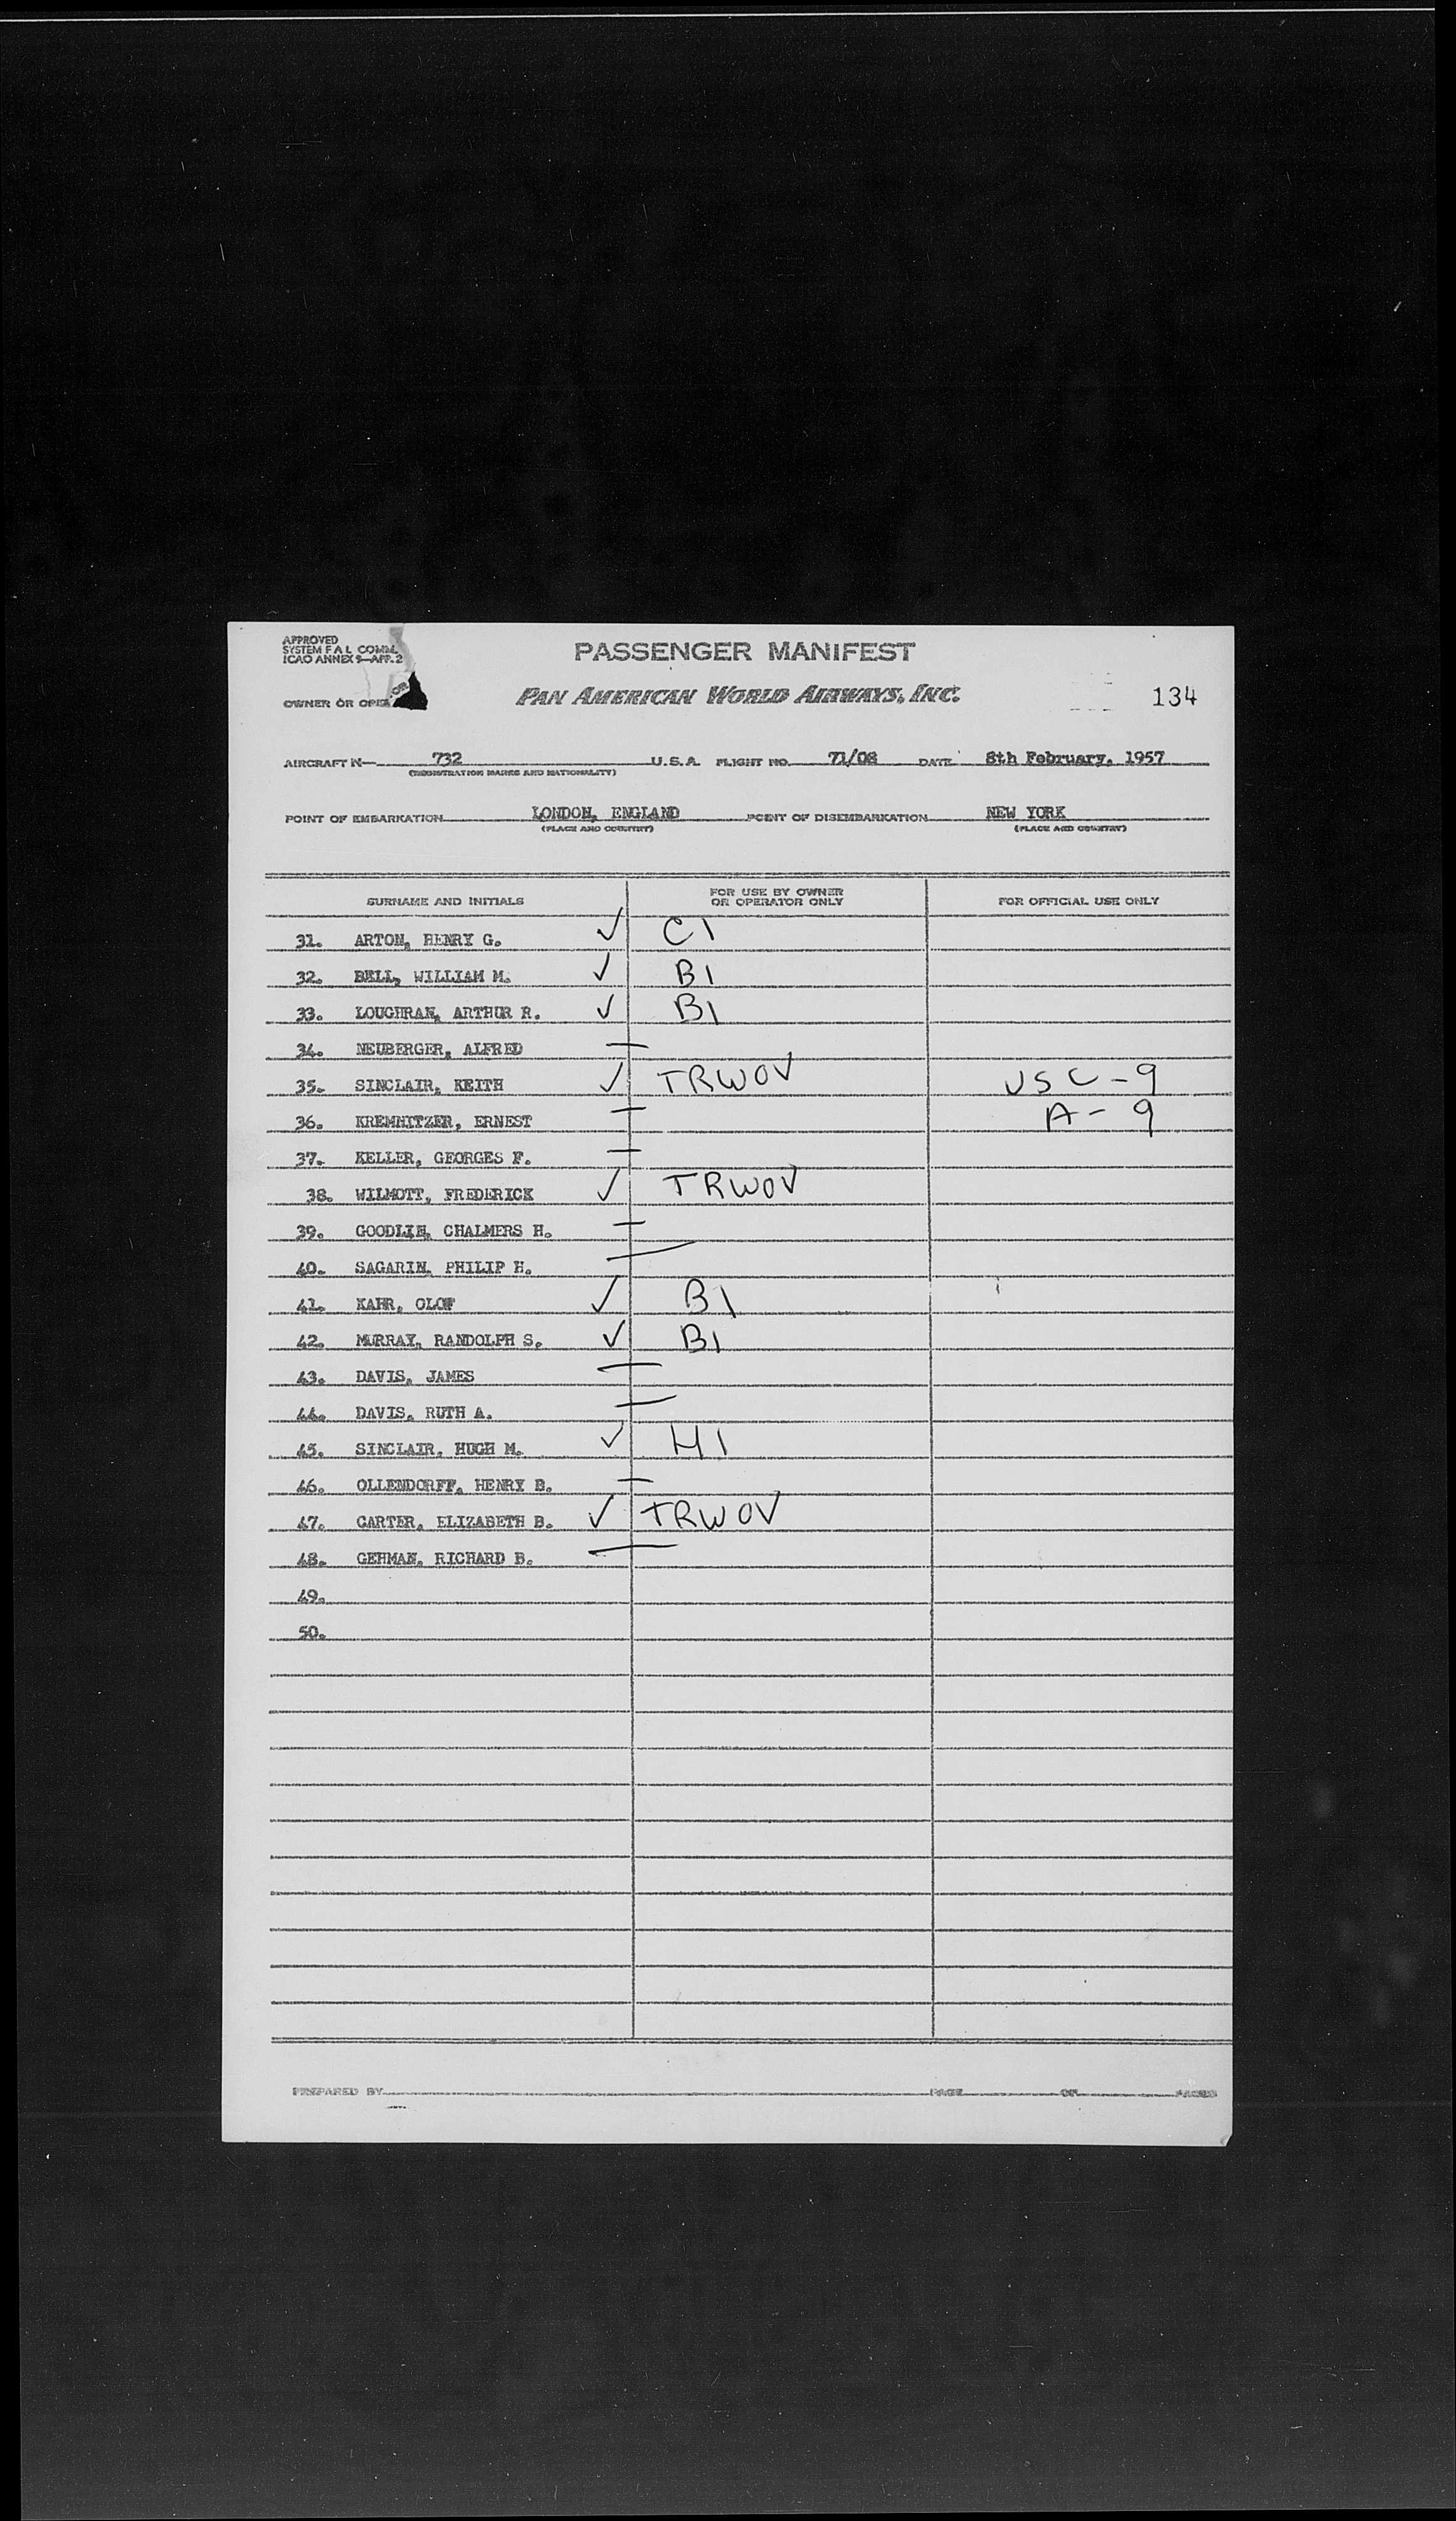 APPROVED
SYSTEM F A L COMM.
ICAO ANNEX 9—APP. 2
PASSENGER MANIFEST
OWNER OR
PAN AMERICAN WORLD AIRWAYS, INC.
134
AIRCRAFT N— 732 U.S.A. FLIGHT NO. 71/08 DATE 8th February, 1957
(REGISTRATION MARKS AND NATIONALITY)
POINT OF EMBARKATION LONDON, ENGLAND POINT OF DISEMBARKATION NEW YORK
(PLACE AND COUNTRY) (PLACE AND COUNTRY)
SURNAME AND INITIALS FOR USE BY OWNER OR OPERATOR ONLY FOR OFFICIAL USE ONLY
31. ARTON, HENRY G. ✓ C1
32. BELL, WILLIAM M. ✓ B1
33. LOUGHRAN, ARTHUR R. ✓ B1
34. NEUBERGER, ALFRED —
35. SINCLAIR, KEITH ✓ TRWOV USC - 9
36. KREMNITZER, ERNEST — A - 9
37. KELLER, GEORGES F. —
38. WILMOTT, FREDERICK ✓ TRWOV
39. GOODLIN, CHALMERS H. —
40. SAGARIN, PHILIP H. —
41. KAHR, OLOF ✓ B1
42. MURRAY, RANDOLPH S. ✓ B1
43. DAVIS, JAMES —
44. DAVIS, RUTH A. —
45. SINCLAIR, HUGH M. ✓ H1
46. OLLENDORFF, HENRY B. —
47. CARTER, ELIZABETH B. ✓ TRWOV
48. GEHMAN, RICHARD B. —
49.
50.
PREPARED BY PAGE OF PAGES